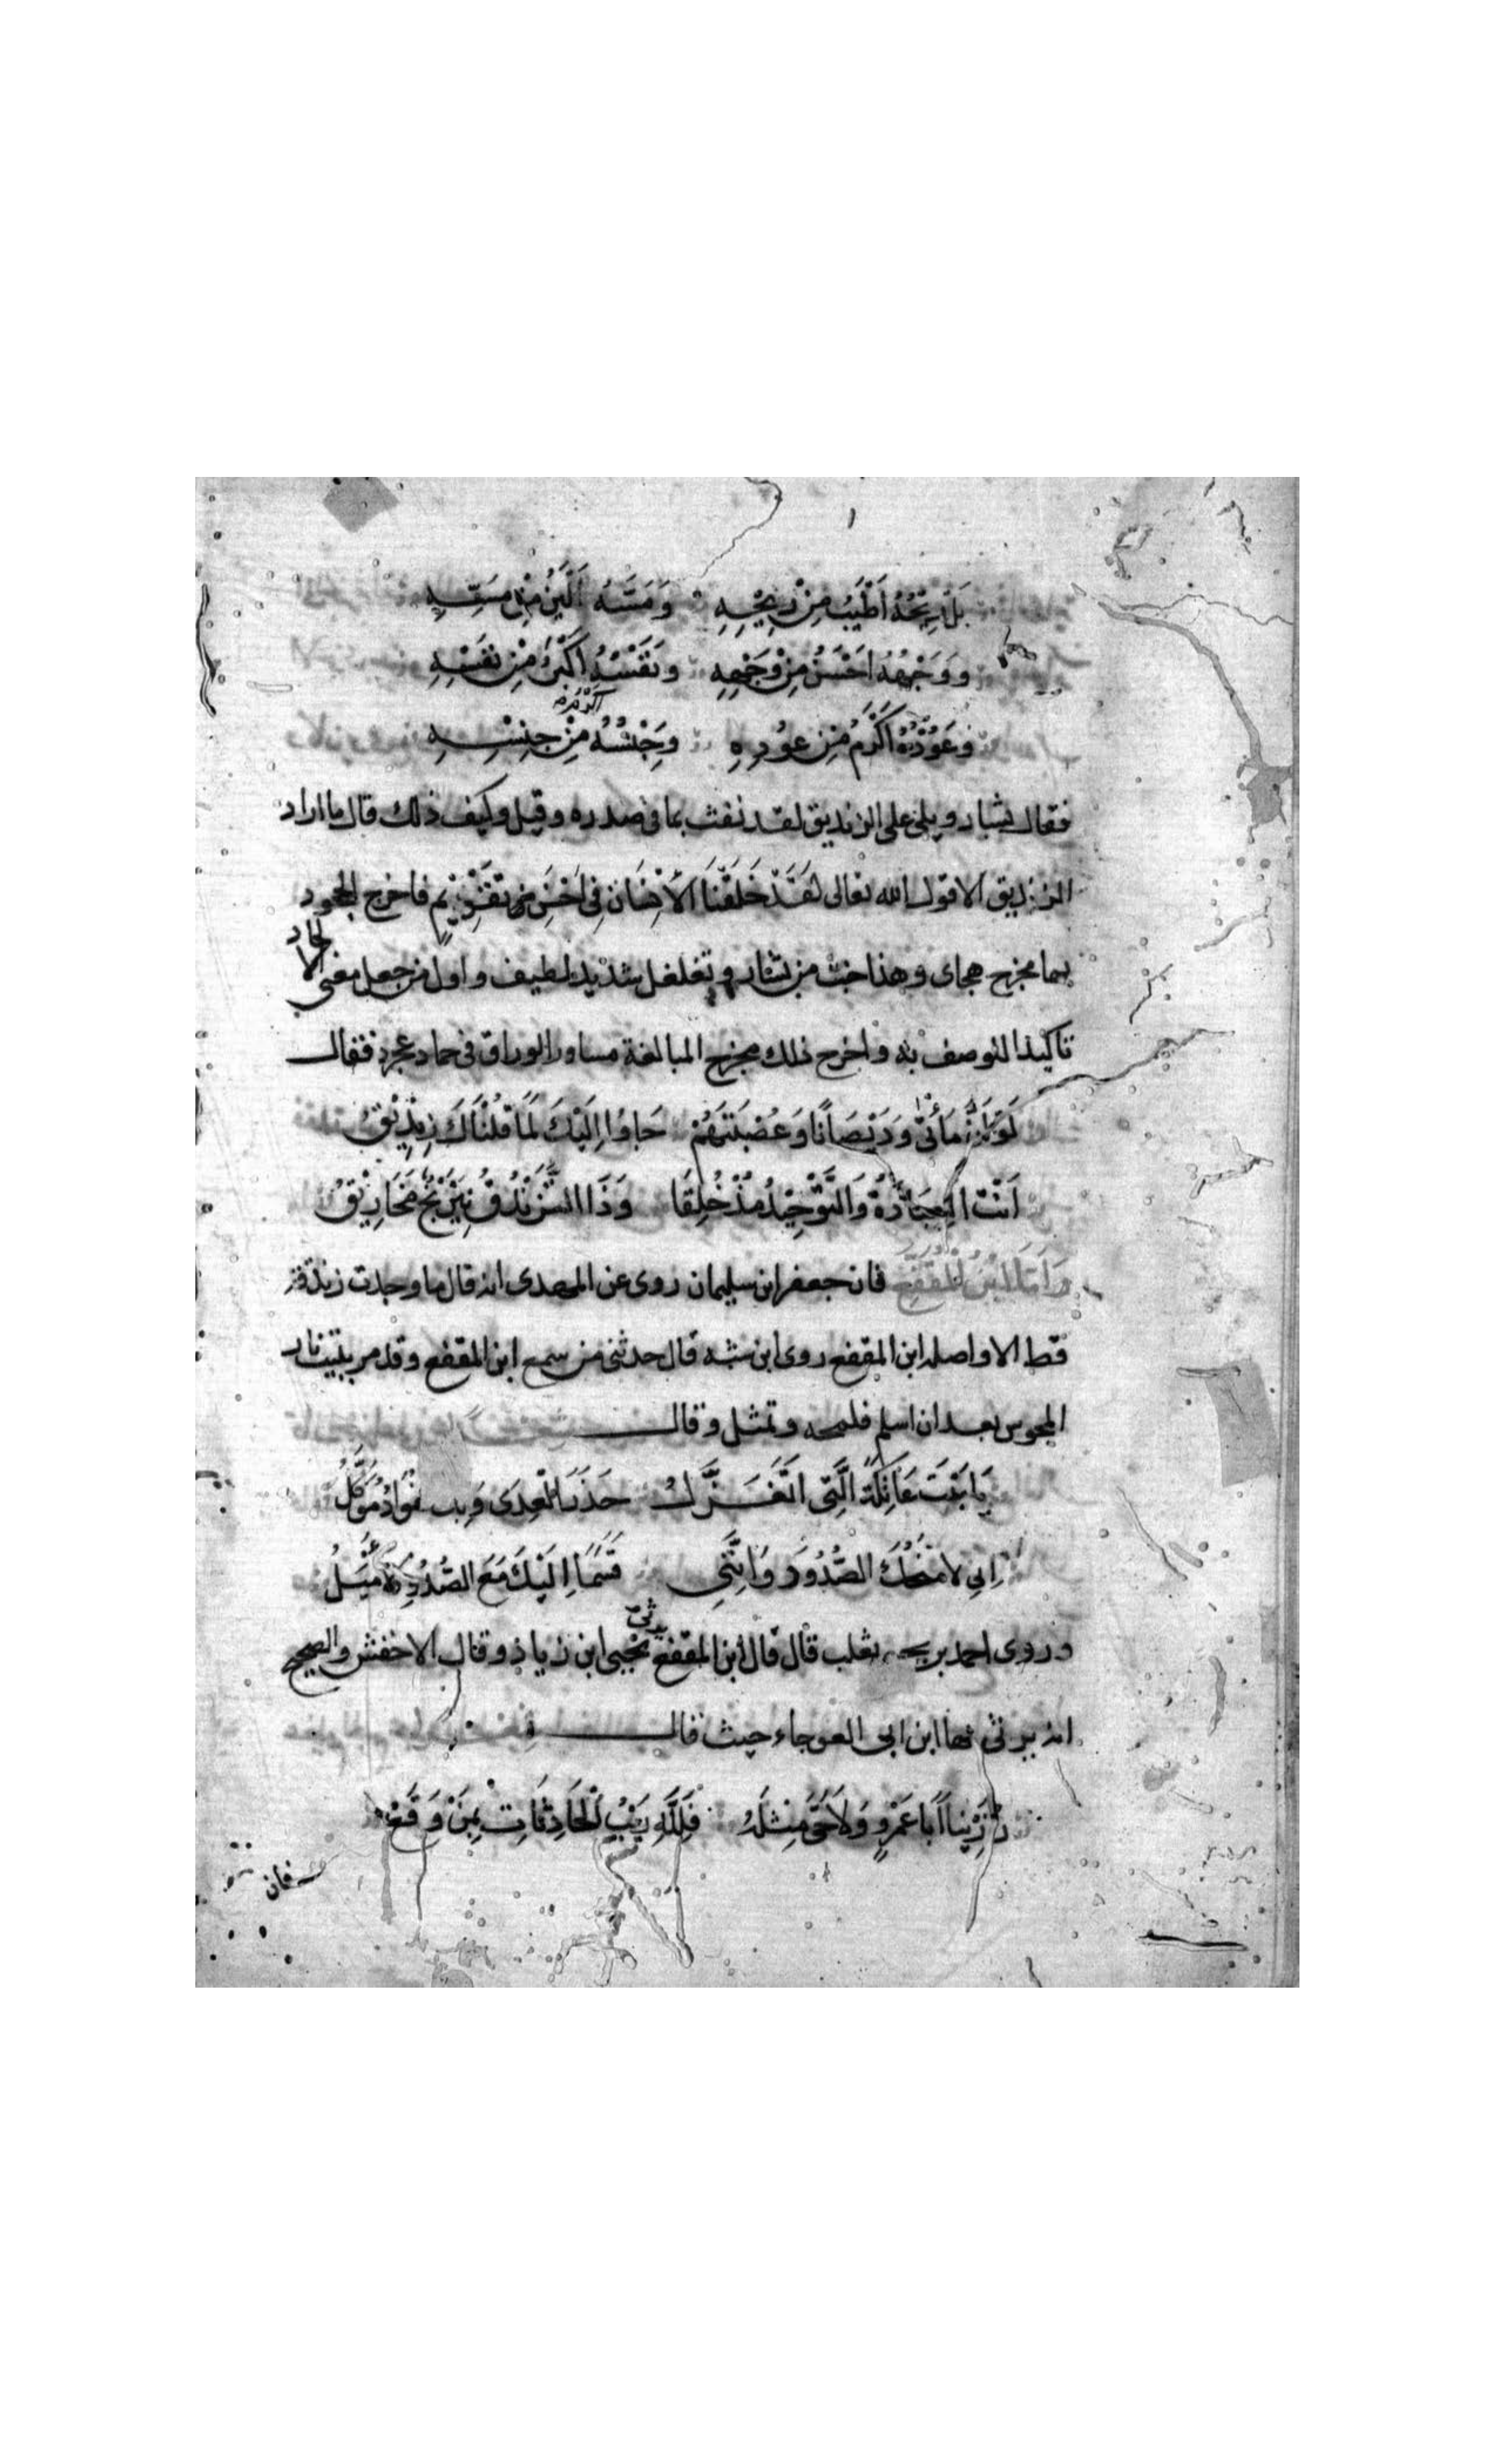 بَلْ رِيْحُهُ اَطْيَبُ مِنْ رِيْحِهِ وَمَسُّهُ اَلْيَنُ مِنْ مَسِّهِ
وَوَجْهُهُ اَحْسَنُ مِنْ وَجْهِهِ وَنَفْسُهُ مِنْ نَفْسِهِ
وعَوُدُهُ اَكْرَمُ مِن عوُدِهِ وَجِنْسُهُ اكرم مِنْ جِنْسِهِ
فقال بشار ويلى على الزنديق لقد نفث بما فى صدره وقيل وكيف ذلك قال ما اراد
الزنديق الا قول الله تعالى لَقَدْ خَلَقْنَا الْأِنْسَانَ فِى اَحْسَنِ تَقْوِيْمٍ فاخرج الجحود
بها مخرج هجاى وهذا خبث من بشار وتغلغل شديد لطيف واول من جعل معنى الالحاد
تاكيدا للوصف به واخرج ذلك مخرج المبالغة مساور الوراق فى حماد عجرد فقال
لَوْ مَانِىْ وَدَيْصَانًا وَعُصْبَتَهُمْ جَاوُا اِلَيْكَ لَمَا قُلْنَاكَ زِنْدِيْقُ
اَنْتَ الْعِبَادَةُ وَالتَّوْحِيْدُ مُذْ خُلِقَا وَذَا التَّزَنْدُقُ نِيْرَنْجٌ مَخَارِيْقُ
وَاَمَّا ابْنُ الْمُقَفَّعِ فان جعفر ابن سليمان روى عن المهدى انه قال ما وجدت زندقة
قط الا واصله ابن المقفع روى ابن شبه قال حدثنى من سمع ابن المقفع وقد مر ببيت نار
المجوس بعد ان اسلم فلمحه وتمثل وقال
يَا بَيْتَ عَاتِكَةَ الَّتِى اَتَغَزَّلُ حَذَرَ الْعِدَى وَبِهِ فُوَادٌ مُوَكَّلُ
اِنى لامنَحُكَ الصُّدُودَ وَاِنَّنِى قَسَمًا اِلَيْكَ مَعَ الصُّدُوْدِ لَاَمْيَلُ
وروى احمد بن يحيى ثعلب قال قال ابن المقفع يرثى يحيى ابن زياد وقال الاخفش والصحيح
انه يرثى بها ابن ابى العوجاء حيث قال
رُزِيْنَا اَبَا عَمْرٍو وَلاَ حَىَّ مِثْلَهُ فَلِلَّهِ رَيْبُ الْحَادِثَاتِ بِمَنْ وَقَعْ
فان